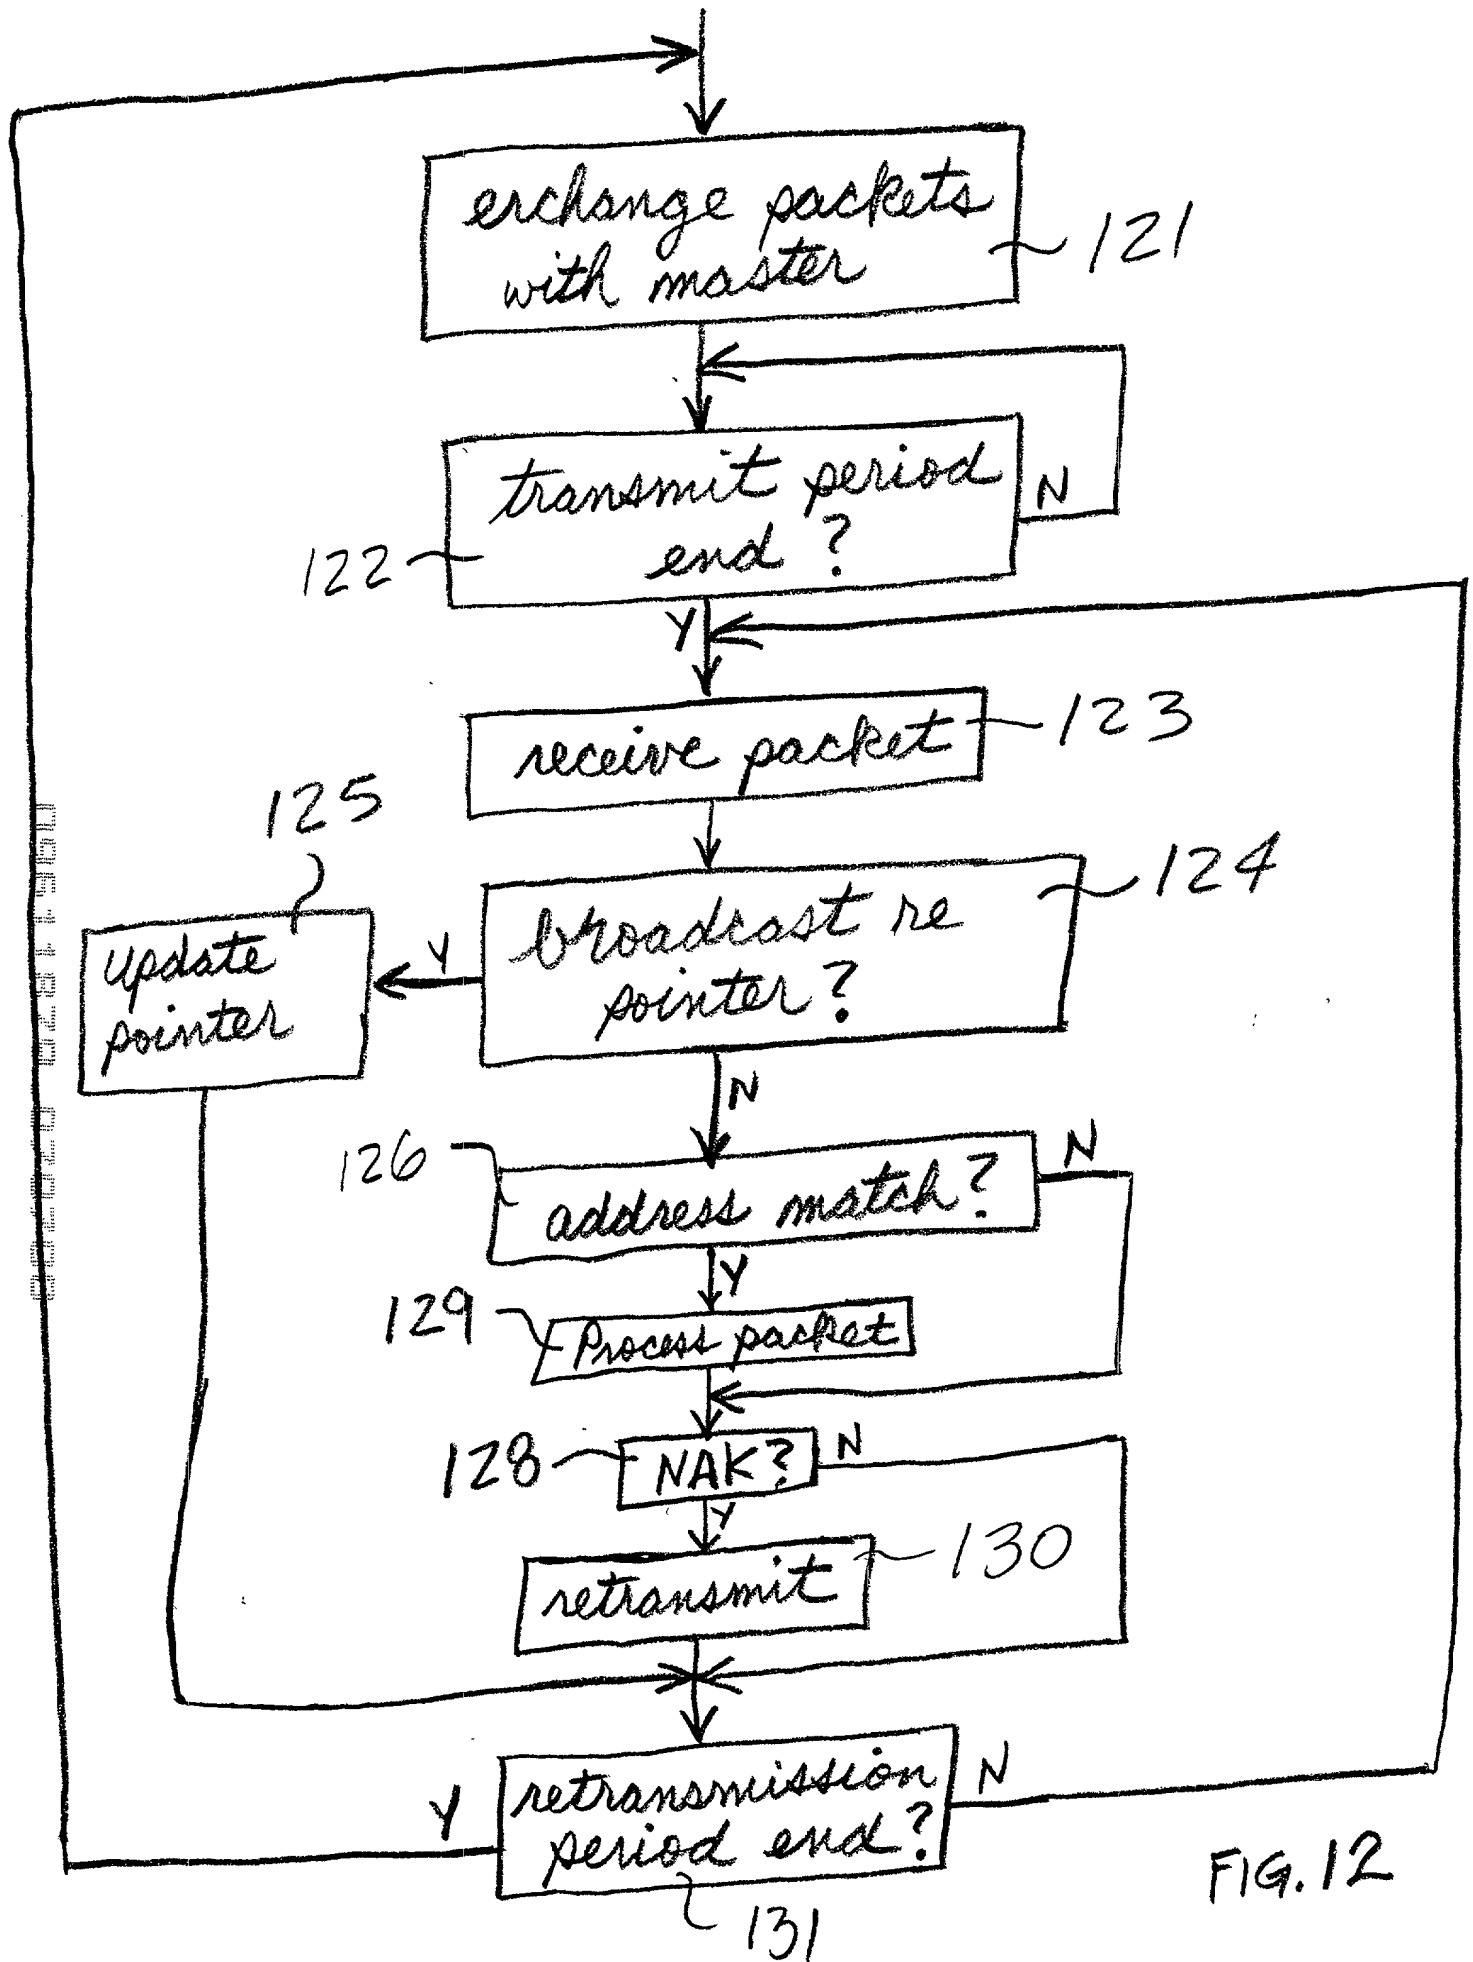 exchange packets
with master
121
transmit period
end ?
N
122
Y
receive packet
123
125
broadcast re
pointer ?
124
Y
update
pointer
N
126
address match ?
N
Y
129
Process packet
128
NAK ?
N
Y
retransmit
130
retransmission
period end ?
Y
N
131
FIG. 12